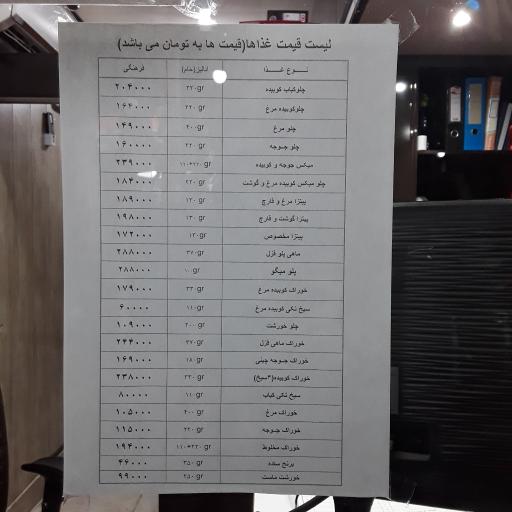 لیست قیمت غذاها(قیمت ها به تومان می باشد)
نــوع غــذا آنالیز(خام) فرهنگی
چلوکباب کوبیده ۲۲۰gr ۲۰۴۰۰۰
چلوکوبیده مرغ ۲۲۰gr ۱۶۴۰۰۰
چلو مرغ ۴۰۰gr ۱۴۹۰۰۰
چلو جــوجه ۲۲۰gr ۱۶۰۰۰۰
میکس جوجه و کوبیده ۱۱۰+۲۲۰ gr ۲۳۹۰۰۰
چلو میکس کوبیده مرغ و گوشت ۲۲۰ gr ۱۸۴۰۰۰
پیتزا مرغ و قارچ ۱۲۰ gr ۱۸۹۰۰۰
پیتزا گوشت و قارچ ۱۳۰ gr ۱۹۸۰۰۰
پیتزا مخصوص ۱۳۰gr ۱۷۲۰۰۰
ماهی پلو قزل ۳۷۰gr ۲۸۸۰۰۰
پلو میگو gr ۲۸۸۰۰۰
خوراک کوبیده مرغ ۲۲۰gr ۱۷۹۰۰۰
سیخ تکی کوبیده مرغ ۱۱۰gr ۶۰۰۰۰
چلو خورشت ۲۰۰gr ۱۰۹۰۰۰
خوراک ماهی قزل ۳۷۰gr ۲۴۴۰۰۰
خوراک جــوجه چینی ۱۸۰gr ۱۶۹۰۰۰
خوراک کوبیده(۳سیخ) ۳۳۰ gr ۲۳۸۰۰۰
سیخ تکی کباب ۱۱۰gr ۸۰۰۰۰
خوراک مرغ ۴۰۰ gr ۱۰۵۰۰۰
خوراک جــوجه ۲۲۰ gr ۱۱۵۰۰۰
خوراک مخلوط ۱۱۰+۲۲۰ gr ۱۹۴۰۰۰
برنج ساده ۳۵۰ gr ۴۶۰۰۰
خورشت ماست ۲۵۰ gr ۹۹۰۰۰